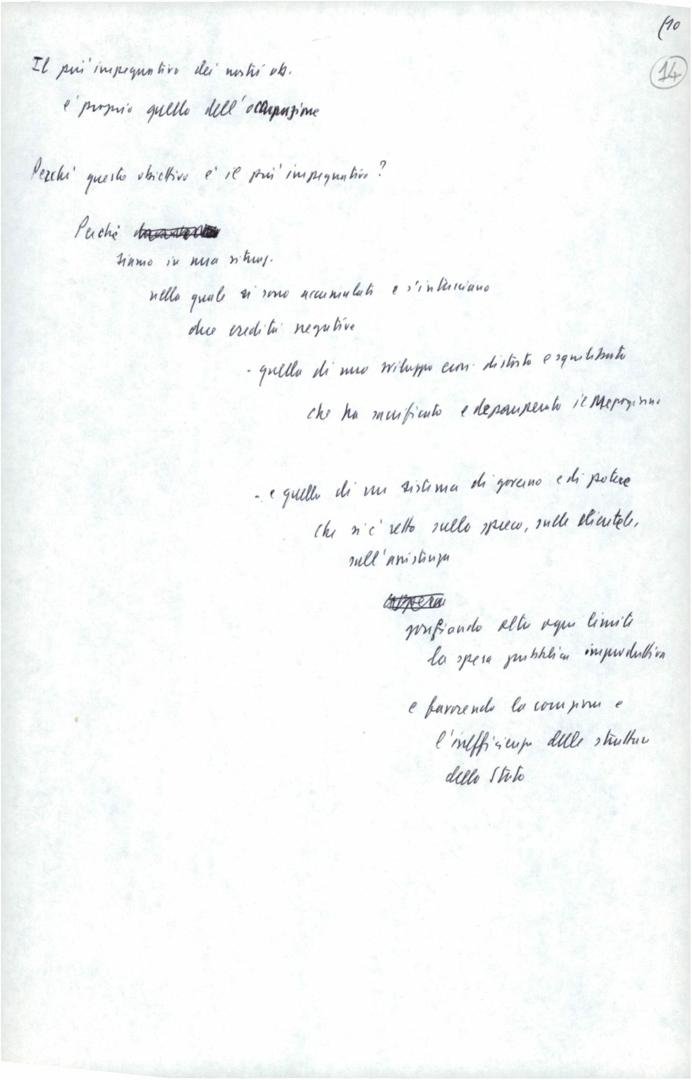 (10
14
Il piu' impegnativo dei nostri ob.
e' proprio quello dell'occupazione
Perche' questo obiettivo e' il piu' impegnativo?
Perché
siamo in una situaz.
nella quale si sono accumulati e s'intrecciano
due eredità negative
- quella di uno sviluppo econ. distorto e squilibrato
che ha sacrificato e depauperato il Mezzogiorno
- e quella di un sistema di governo e di potere
che si è retto sullo spreco, sulle clientele,
sull'assistenza
gonfiando oltre ogni limite
la spesa pubblica improduttiva
e favorendo la corruzione e
l'inefficienza delle strutture
dello Stato